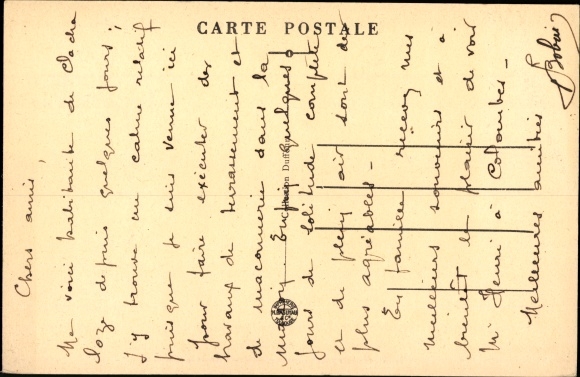 CARTE POSTALE
Collection Duff
Chers amis,
Me voici habitante de Clacha
loze depuis quelques jours ;
j'y trouve un calme relatif
puisque je suis venue ici
pour faire exécuter des
travaux de terrassement et
de maçonnerie dans la
Enfin quelques
jours de solitude complète
et de plein air sont des
plus agréables -
En famille recevez mes
meilleurs souvenirs et à
bientôt le plaisir de voir
Mr Henri à Colombes -
Meilleures amitiés